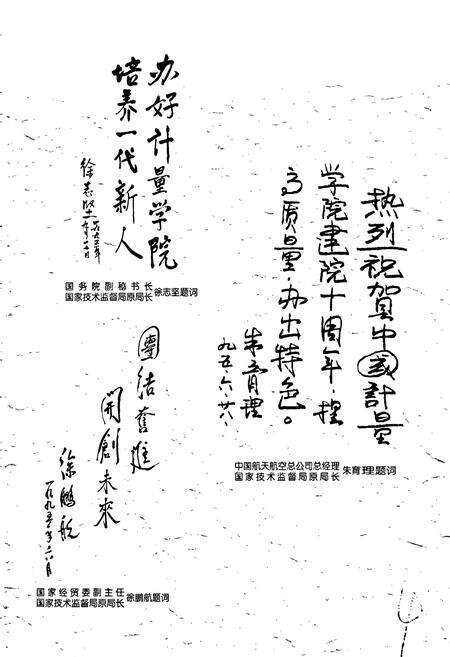 办好计量学院
培养一代新人
徐志坚
一九九五年
国务院副秘书长
国家技术监督局原局长 徐志坚题词
热烈祝贺中国计量
学院建院十周年 提
高质量、办出特色。
朱育理
九五·六·廿八·
中国航天航空总公司总经理
国家技术监督局原局长 朱育理题词
團结奮進
開創未來
徐鹏航
一九九五年六八月
国家经贸委副主任
国家技术监督局原局长 徐鹏航题词